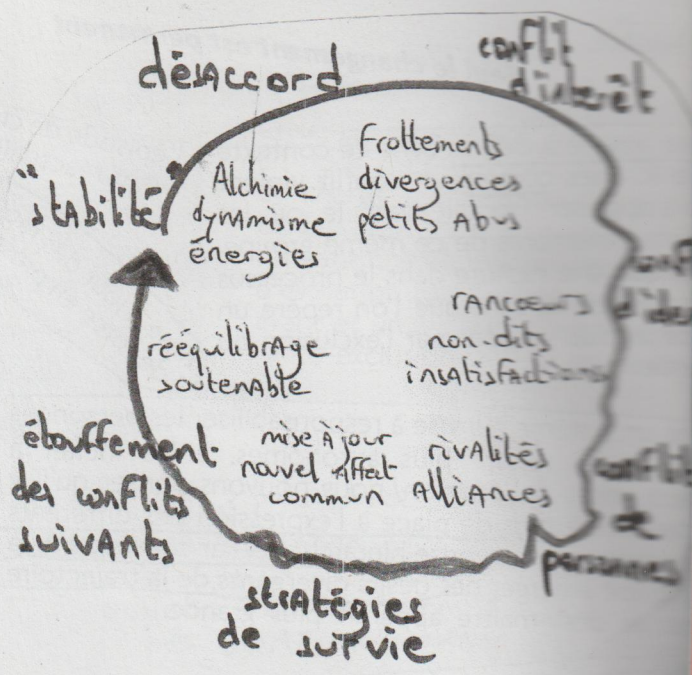 désaccord
conflit
d'intérêt
"stabilité"
Alchimie
dynamisme
énergies
Frottements
divergences
petits Abus
rancoeurs
non-dits
insatisfactions
rééquilibrage
soutenable
étouffement
des conflits
suivants
mise à jour
nouvel Affect
commun
rivalités
Alliances
de
personnes
stratégies
de survie